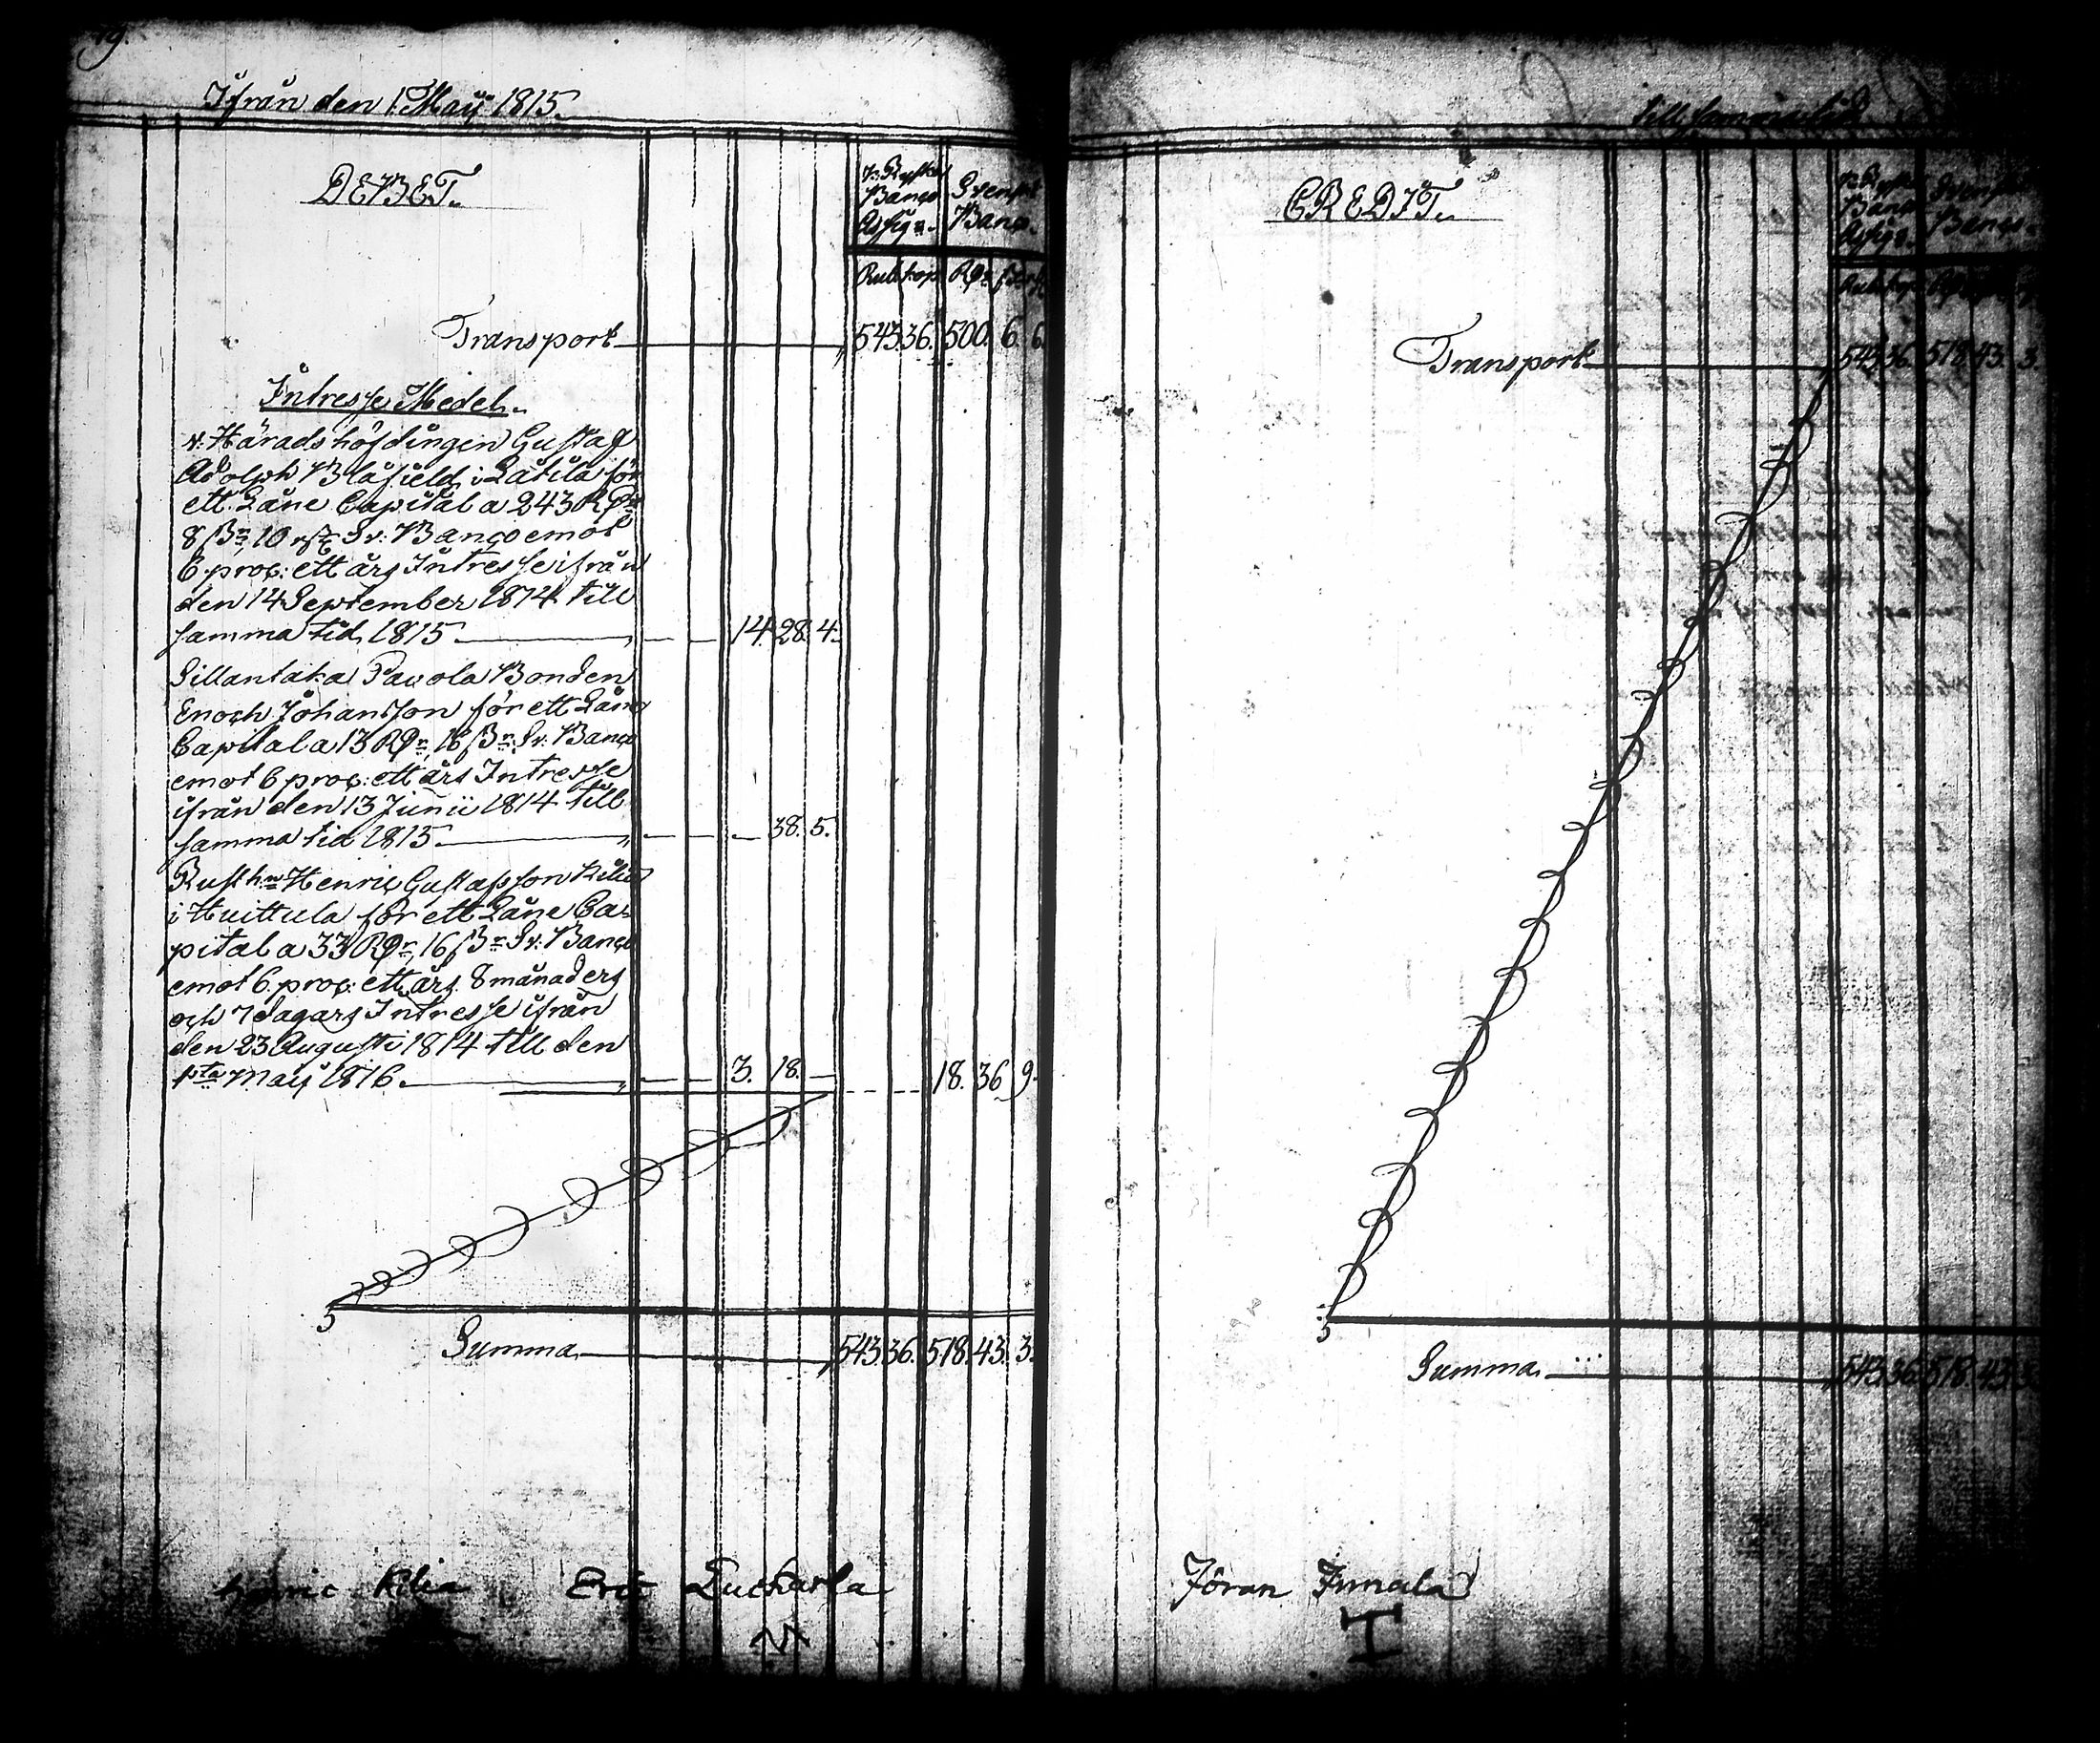 Ifrån den 1. Maÿ 1815.
DEBET.
Banco Svensk
Assign. Banco.
Rub: kop. RDr
Transport 543 36. 500. 6. 6.
Intresse Medel.
v: Häradshöfdingen Gustaf
Adolph Blåfield i Låtila för
ett Låne Capital a 243 RDr
8 ßr 10 rst Sv: Banco emot
6 proc: ett års Intresse ifrån
den 14 September 1814 till
samma tid 1815. 14. 28. 4.
Sillantaka Pavola Bonden
Enoch Johansson för ett Låne
Capital a 13 RDr 16 ßr Sv: Banco
emot 6 proc: ett års Intresse
ifrån den 13 Junii 1814 till
samma tid 1815. 38. 5.
Rusth: Henric Gustafsson Kilia
i Huittula för ett Låne Ca-
pital a 33 RDr 16 ßr Sv: Banco
emot 6. proc: ett års 8 månaders
och 7 dagars Intresse ifrån
den 23 Augusti 1814 till den
1sta Maÿ 1816. 3. 18. 18. 36. 9.
Summa 543. 36. 518. 43. 3.
Henric Kilia Eric
till samma tid
CREDIT.
Banco Svensk
Banco.
Transport 543 36. 518. 43. 3.
Summa 543 36. 518. 43.
Jöran